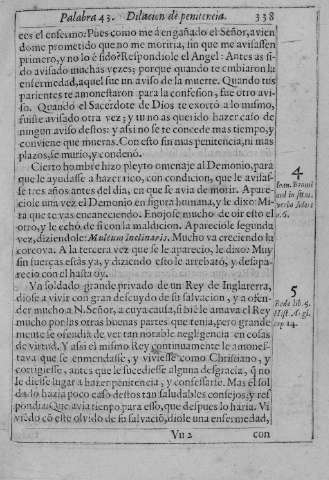 Palabra 43. Dilacion de penitencia. 338
ees el enfermo: Pues como me à engañado el Señor, avien
dome prometido que no me moriria, sin que me avisassen
primero, y no lo è sido? Respondiole el Angel: Antes as si-
do avisado muchas vezes; porque quando te embiaron la
enfermedad, aquel fue un aviso de la muerte. Quando tus
parientes te amonestaron para la confession, fue otro avi-
so. Quando el Sacerdote de Dios te exortò a lo mismo,
fuiste avisado otra vez; y tu no as querido hazer caso de
ningun aviso destos: y assi no se te concede mas tiempo, y
conviene que mueras. Con esto sin mas penitencia, ni mas
plazos, se murio, y condenò.
Cierto hombre hizo pleyto omenaje al Demonio, para
que le ayudasse a hazer rico, con condicion, que le avisas-
se tres años antes del dia, en que se avia de morir. Apare-
ciole una vez el Demonio en figura humana, y le dixo: Mi-
ra que te vas encaneciendo. Enojose mucho de oir esto el
otro, y le echò de si con la maldicion. Apareciole segunda
vez, diziendole: Multum inclinaris. Mucho va creciendo la
corcova. A la tercera vez que se le aparecio, le dixo: Muy
sin fuerças estás ya, y diziendo esto le arrebatò, y desapa-
recio con el hasta oy.
4
v. 6.
Vn soldado grande privado de un Rey de Inglaterra,
diose a vivir con gran descuydo de su salvacion, y a ofen-
der mucho a N. Señor, a cuya causa, si biē le amava el Rey
mucho por las otras buenas partes que tenia, pero grande
mente se ofendia de ver tan notable negligencia en cosas
de virtud. Y assi el mismo Rey continuamente le amones-
tava que se enmendasse, y viviesse como Christiano, y
corrigiesse, antes que le sucediesse alguna desgracia, q̃ no
le diesse lugar a hazer penitencia, y confessarse. Mas el sol
dado hazia poco caso destos tan saludables consejos, y res
pondia: Que avia tiẽpo para esso, que despues lo haria. Vi
viẽdo cõ este olvido de su salvaciõ, diole una enfermedad,
5
Beda lib. 5.
Hist. Angl.
cap. 14.
Vu 2 con